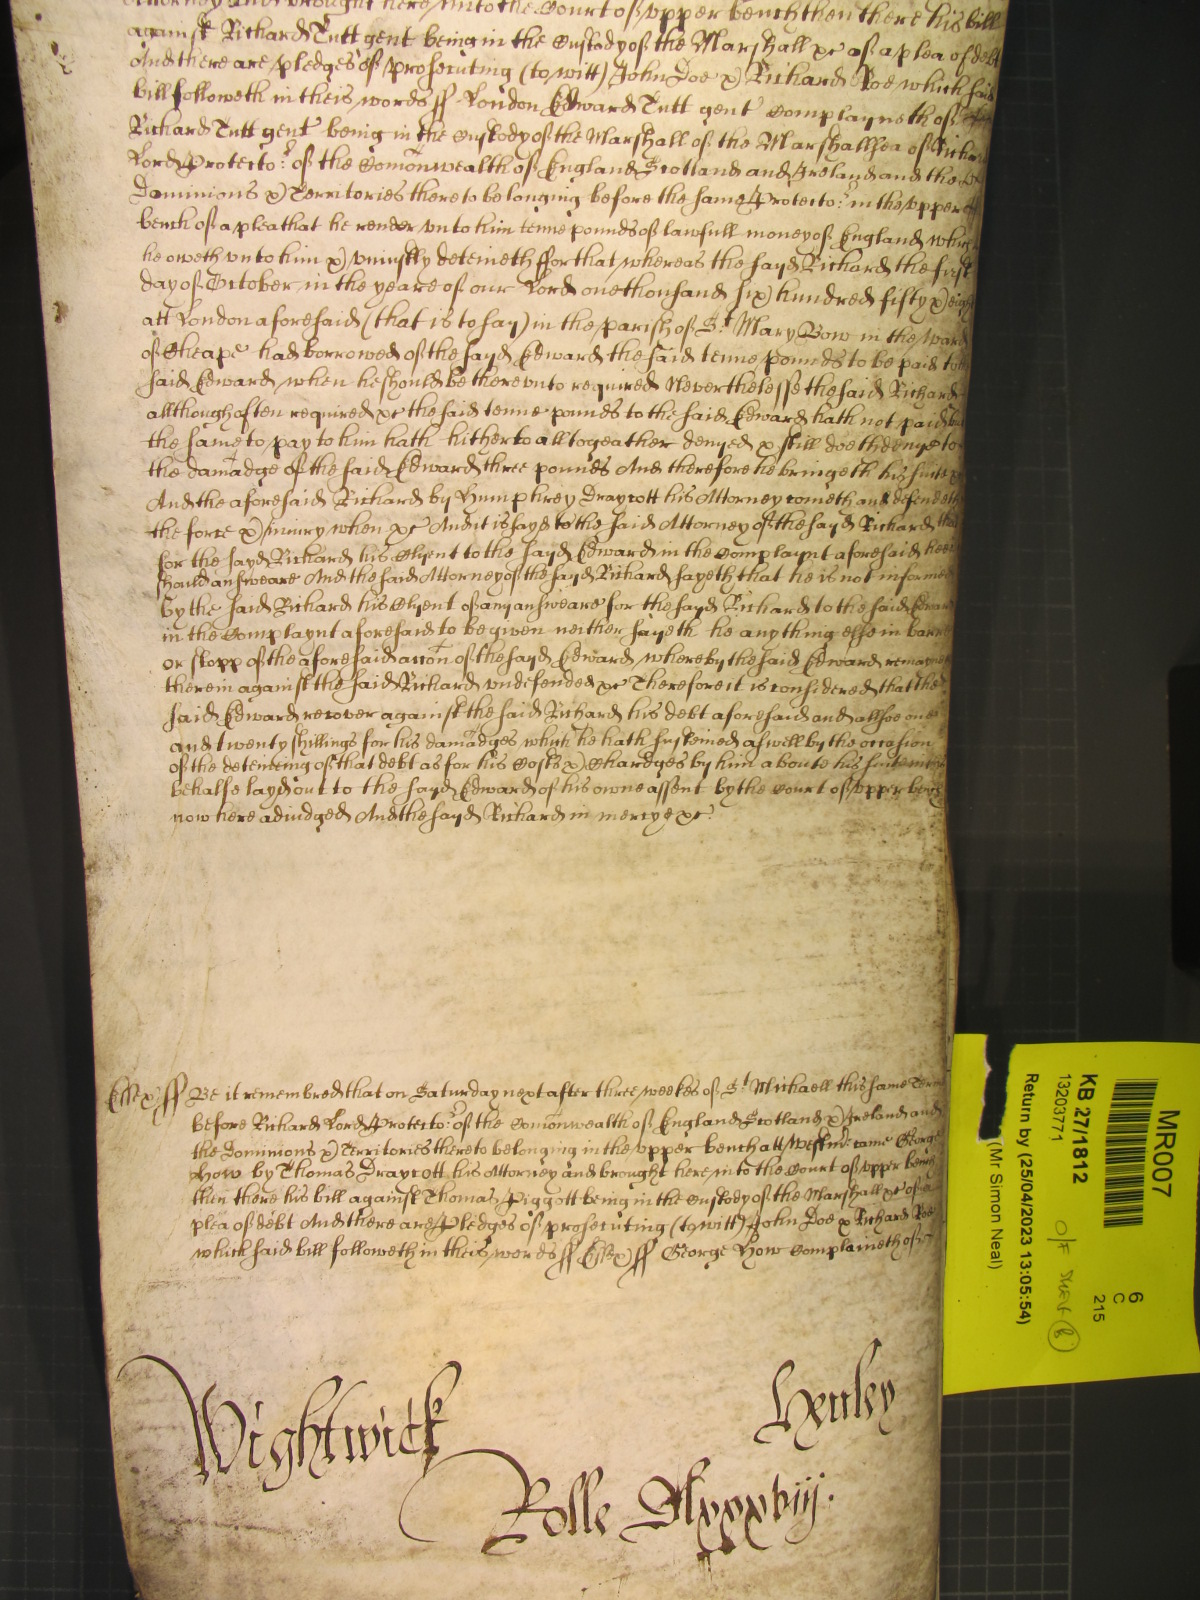 Attorney and brought here into the Court of vpper bench then there his bill
against Richard Tutt gent being in the Custody of the Marshall &c of a plea of debt
And there are pledges of prosecuting (to witt) John Doe & Richard Roe which said
bill followeth in theis words ff London Edward Tutt gent Complayneth of
Richard Tutt gent being in the Custody of the Marshall of the Marshallsea of Richard
Lord Protector of the Comonwealth of England Scotland and Ireland and the
Dominions & Territories thereto belonging before the same Protector in the vpper
bench of a plea that he render vnto him tenne pounds of lawfull money of England which
he oweth vnto him & vniustly deteineth ffor that whereas the sayd Richard the first
day of October in the yeare of our Lord one thousand six hundred fifty & eight
att London aforesaid (that is to say) in the parish of St Mary Bow in the Ward
of Cheape had borrowed of the sayd Edward the said tenne pounds to be paid to the
said Edward when he should be therevnto required Neverthelesse the said Richard
allthough often required &c the said tenne pounds to the said Edward hath not paid but
the same to pay to him hath hitherto alltogeather denyed & still doeth denye to
the damadge of the said Edward three pounds And therefore he bringeth his suite &c
And the aforesaid Richard by Humphrey Draycott his Attorney cometh and defendeth
the force & iniury when &c And it is sayd to the said Attorney of the sayd Richard that
for the sayd Richard his Clyent to the sayd Edward in the Complaynt aforesaid hee
should answeare And the said Attorney of the sayd Richard sayeth that he is not informed
by the said Richard his Clyent of any answeare for the sayd Richard to the said Edward
in the Complaynt aforesaid to be given neither sayeth he anything else in barre
or stopp of the aforesaid accon of the sayd Edward whereby the said Edward remayneth
therein against the said Richard vndefended &c Therefore it is considered that the
said Edward recover against the said Richard his debt aforesaid and allsoe one
and twenty shillings for his damadges which he hath susteined aswell by the occasion
of the deteineing of that debt as for his Costs & Chardges by him aboute his suite in
behalfe layd out to the sayd Edward of his owne assent by the Court of vpper bench
now here adiudged And the sayd Richard in mercye &c
Essex ff Be it remembred that on Saturday next after three weekes of St Michaell this same Terme
before Richard Lord Protector of the Comonwealth of England Scotland & Ireland and
the Dominions & Territories thereto belonging in the vpper bench att Westm came George
How by Thomas Draycott his Attorney and brought here into the Court of vpper bench
then there his bill against Thomas Piggott being in the Custody of the Marshall &c of a
plea of debt And there are Pledges of prosecuting (to witt) John Doe & Richard Roe
which said bill followeth in theis words ff Essex ff George How Complaineth of
Wightwick
Henley
Rolle Clxxxviij.
MR007
KB 27/1812
13203771
6
C
215
Return by (25/04/2023 13:05:54)
(Mr Simon Neal)